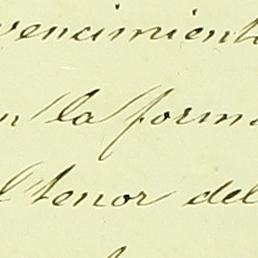 vencimiento
en la forma
el tenor del